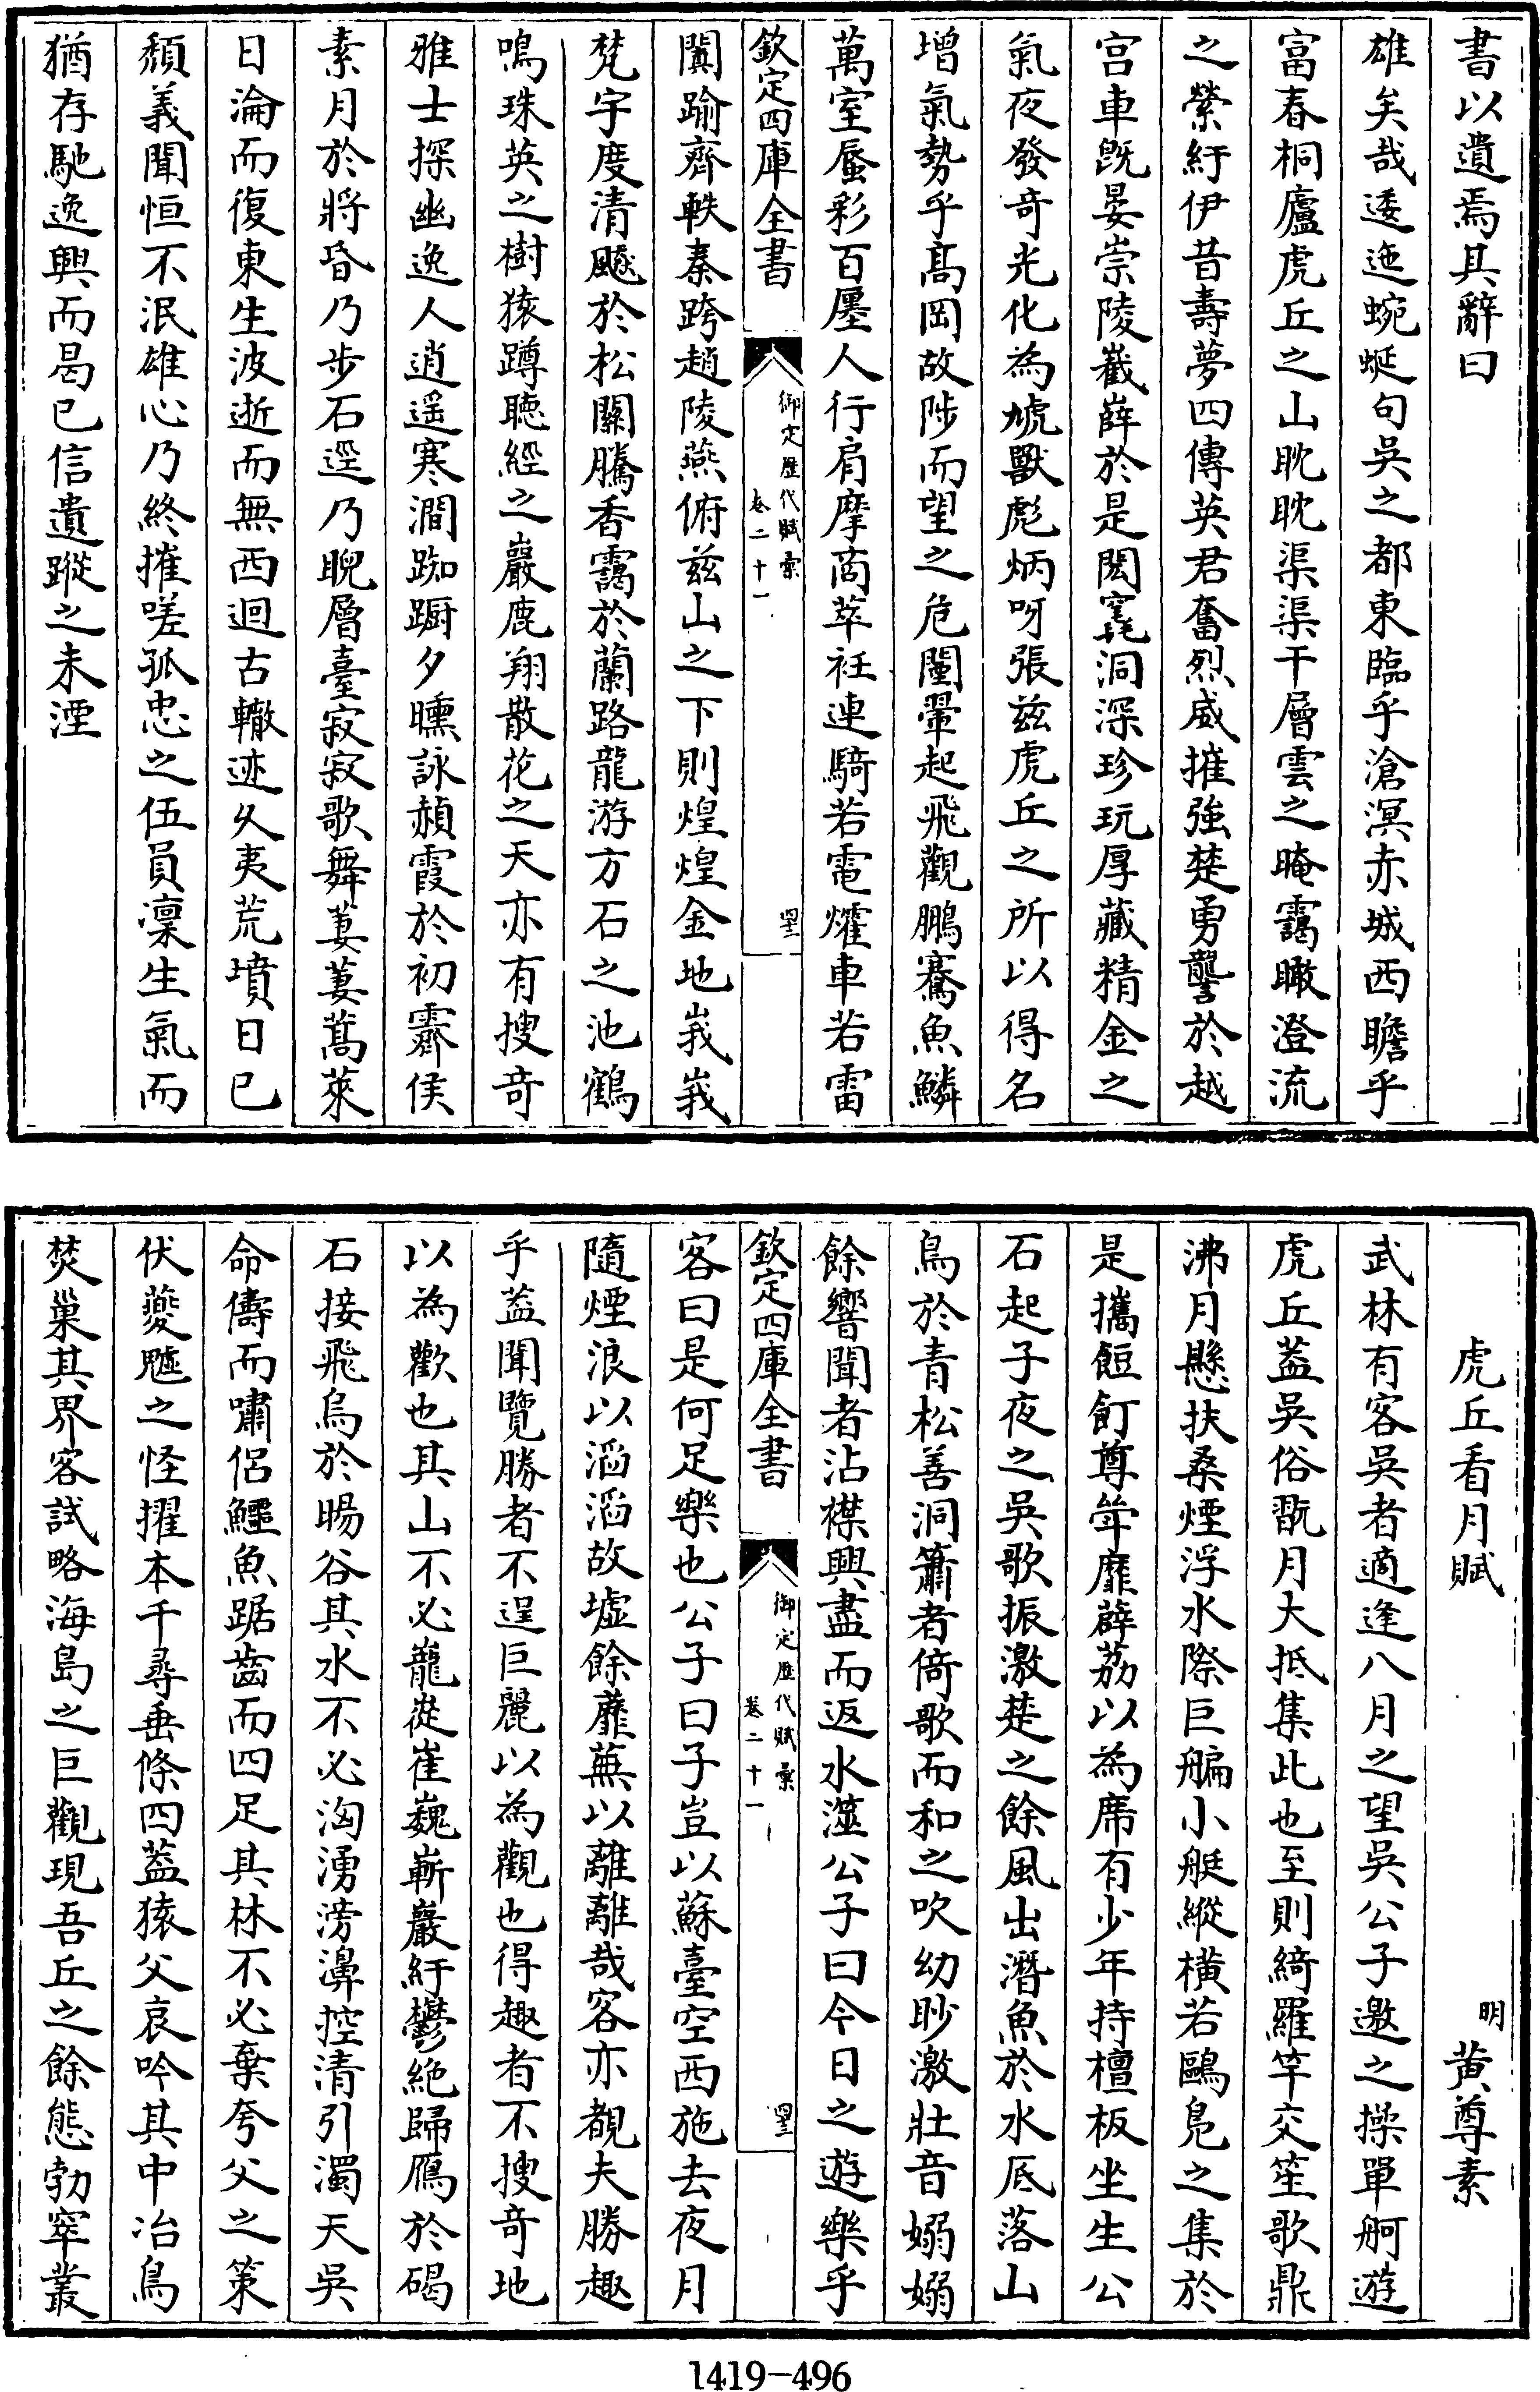 書以遺焉其辭曰
雄矣哉逶迤蜿蜒句吳之都東臨乎滄溟赤城西瞻乎
富春桐廬虎丘之山眈眈渠渠干層雲之晻靄瞰澄流
之縈紆伊昔壽夢四傳英君奮烈威摧強楚勇讋於越
宮車旣晏崇陵嶻嶭於是閎窀洞深珍玩厚藏精金之
氣夜發奇光化為虓獸彪炳呀張兹虎丘之所以得名
增氣勢乎髙岡故陟而望之危闉翬起飛觀鵬騫魚鱗
萬室蜃彩百㕓人行肩摩商萃衽連騎若電爟車若雷
欽定四庫全書
御定歷代賦彙
卷二十一
闐踰齊軼秦跨趙陵燕俯兹山之下則煌煌金地峩峩
梵宇度清飈於松關騰香靄於蘭路龍游方石之池鶴
鳴珠英之樹猿蹲聽經之巖鹿翔散花之天亦有搜奇
雅士探幽逸人逍遥寒澗踟蹰夕曛詠赬霞於初霽俟
素月於將昏乃步石逕乃睨層臺寂寂歌舞萋萋蒿萊
日淪而復東生波逝而無西迴古轍迹久夷荒墳日已
頽義聞恒不泯雄心乃終摧嗟孤忠之伍員凜生氣而
猶存馳逸興而曷已信遺蹤之未湮
虎丘看月賦
明
黄尊素
武林有客吳者適逢八月之望吳公子邀之操單舸遊
虎丘葢吳俗翫月大抵集此也至則綺羅竿交笙歌鼎
沸月懸扶桑煙浮水際巨艑小艇縱橫若鷗鳬之集於
是攜餖飣尊斝靡薜荔以為席有少年持檀板坐生公
石起子夜之吳歌振激楚之餘風出潛魚於水底落山
鳥於青松善洞簫者倚歌而和之吹幼眇激壯音嫋嫋
餘響聞者沾襟興盡而返水澨公子曰今日之遊樂乎
欽定四庫全書
御定歷代賦彙
卷二十一
客曰是何足樂也公子曰子豈以蘇臺空西施去夜月
隨煙浪以滔滔故墟餘蘼蕪以離離哉客亦覩夫勝趣
乎葢聞覽勝者不逞巨麗以為觀也得趣者不搜奇地
以為歡也其山不必巃嵸崔巍嶄巖紆鬱絶歸鴈於碣
石接飛烏於暘谷其水不必洶湧滂濞控清引濁天吳
命儔而嘯侶鱷魚踞齒而四足其林不必棄夸父之策
伏夔魖之怪擢本千尋垂條四葢猿父哀吟其中冶鳥
焚巢其界客試略海島之巨觀現吾丘之餘態勃窣叢
1419-496